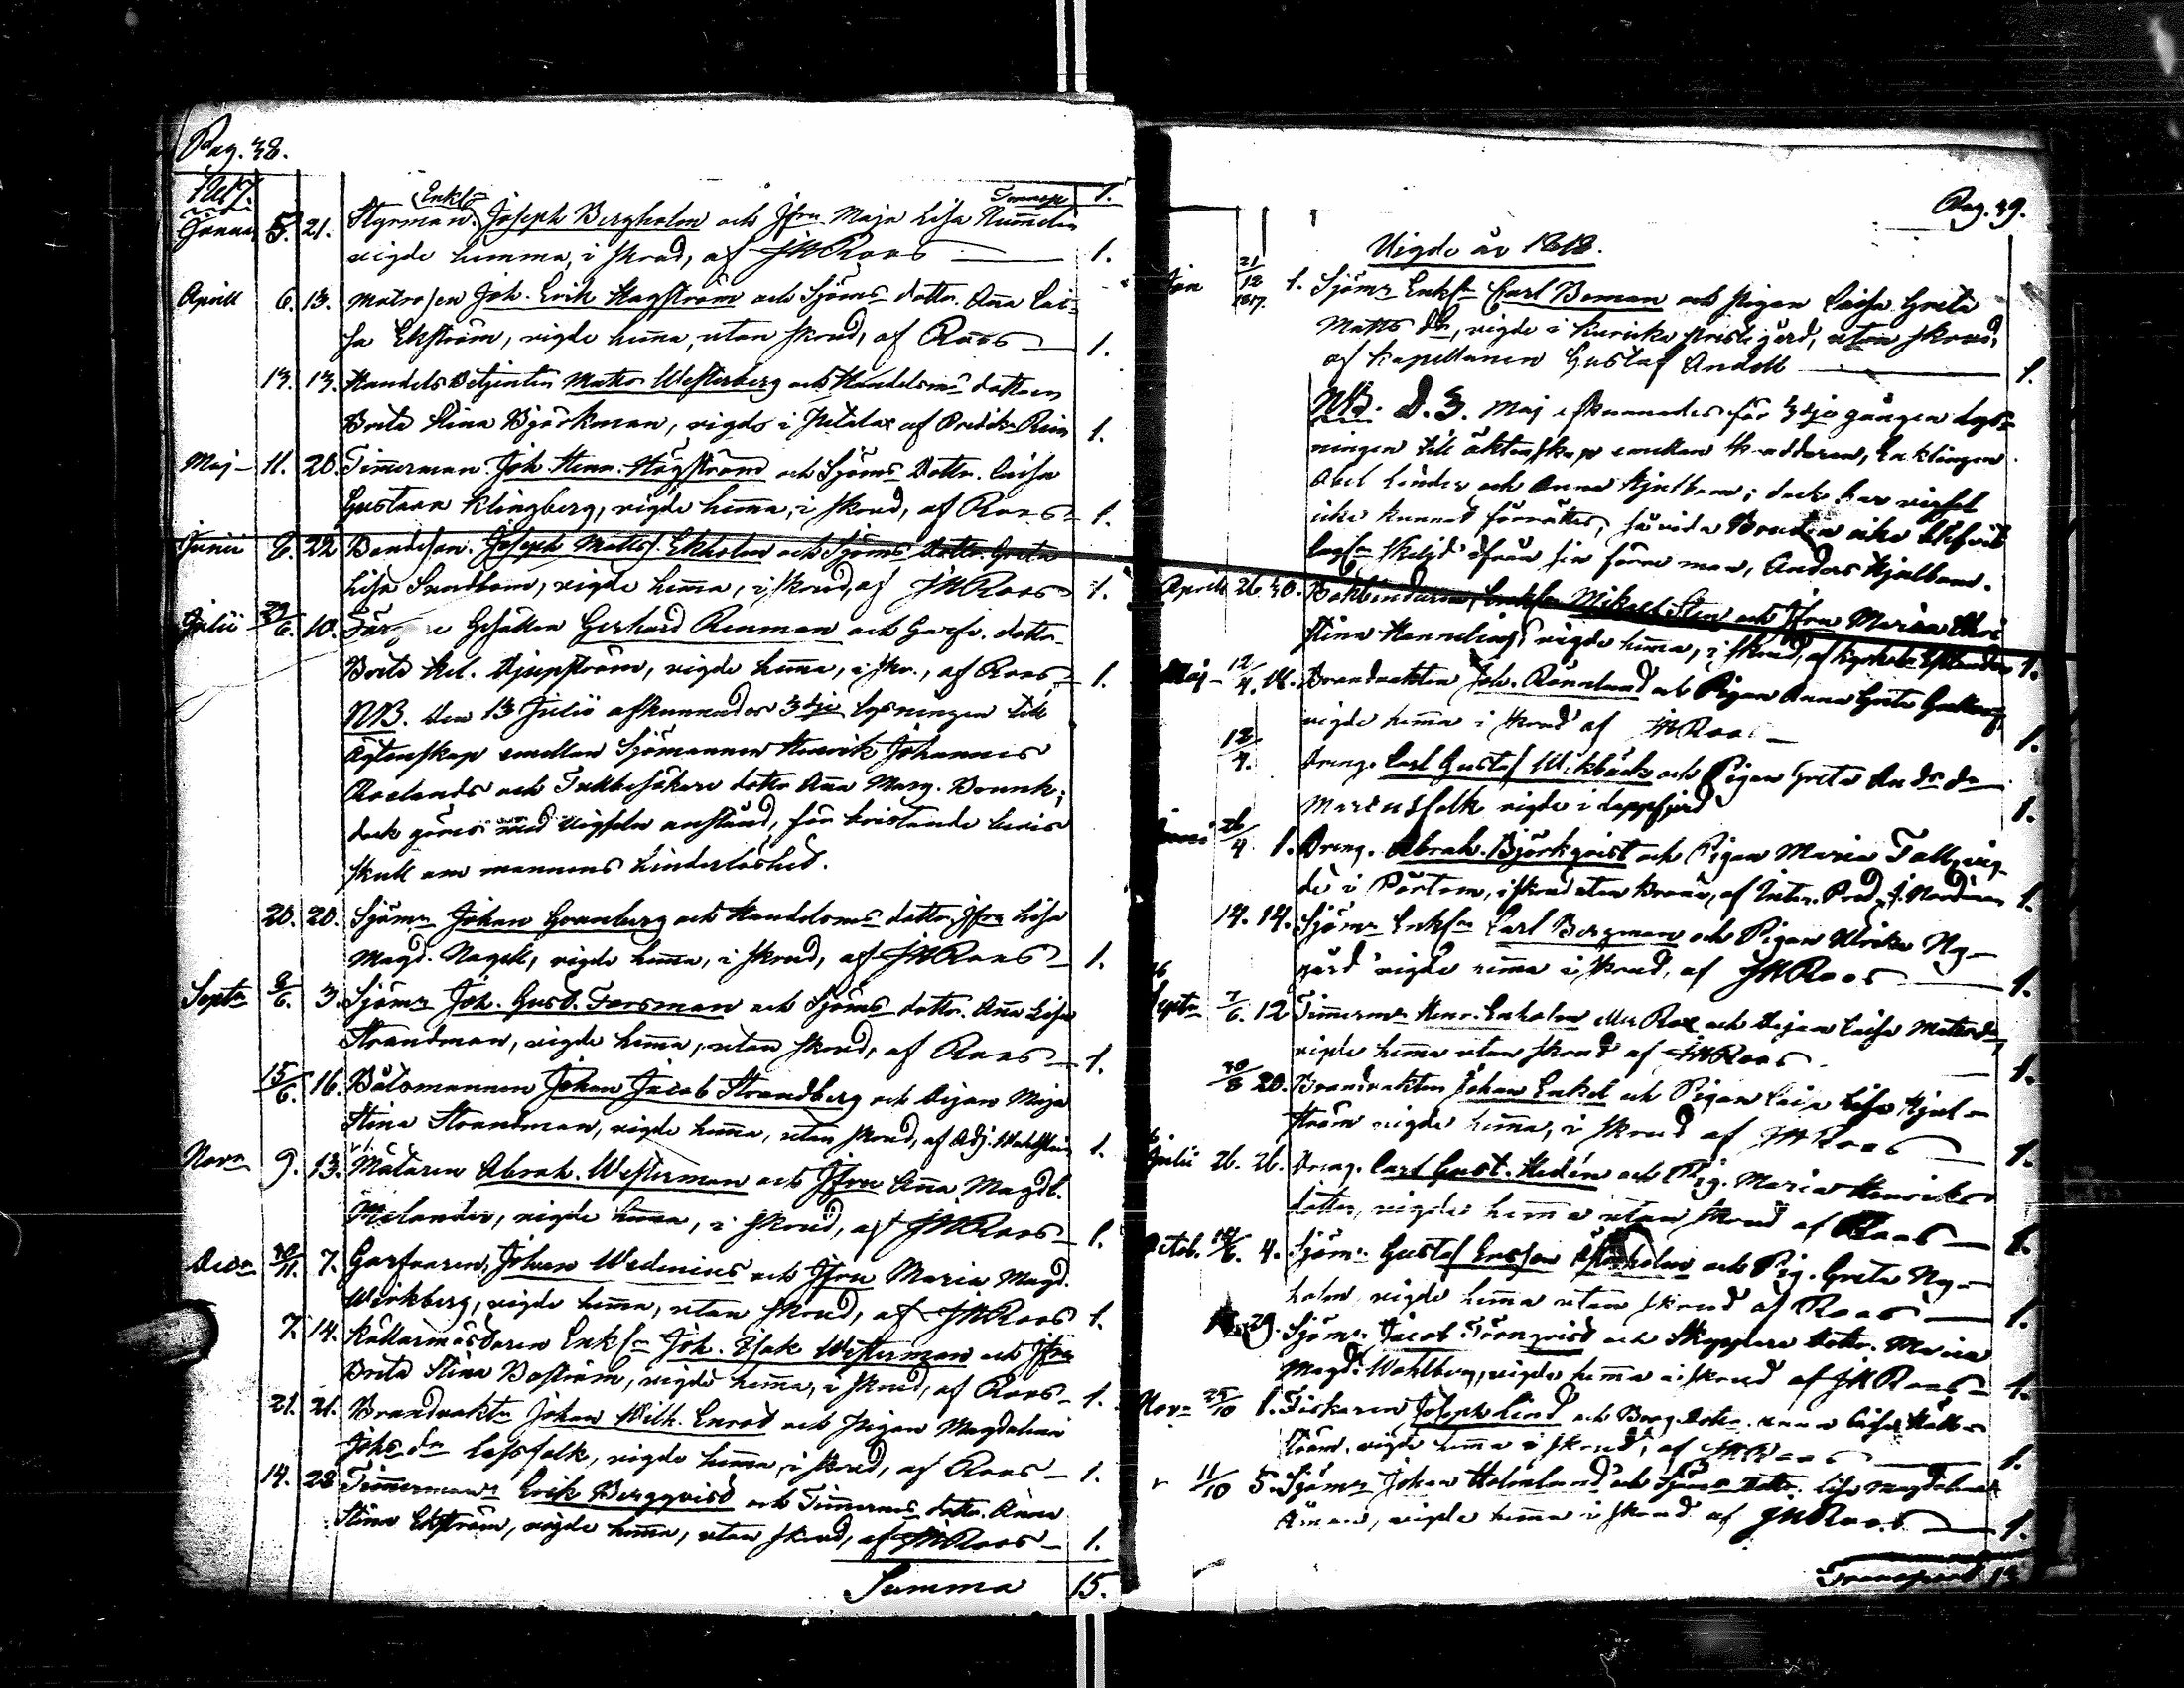 Pag. 38.
1817. Transp. 1.
Januar. 5. 21. Styrman. Enkl:n Joseph Bergholm och Jfru Maja Lisa Rumelin
vigde hemma, i skrud, af JHRoos 1.
April 6. 13. Matrosen Joh. Erik Hagström och Sjöms dottr. Aña Cai-
sa Ekström, vigde heṁa, utan skrud, af Roos 1.
13. 13. Handels Betjenten Matts Westerberg och Handelsms dottren
Brita Stina Björkman, vigde i af 1.
Maj 11. 20. Tim̄erman. Joh. Henr. Högstrand och Sjöms Dottr. Caisa
Gustava Klingberg, vigde heṁa, i skrud, af Roos 1.
Junii 8. 22 Bondeson. Joseph Matts. Ekholm och Sjöms Dottr. Greta
Lisa Sundbom, vigde heṁa, i skrud, af JHRoos 1.
Julii 29/6. 10. Gesällen Gerhard Renman och Garfv. dottr.
Brita Hel. Djupström, vigde heṁa, i skr., af Roos 1.
NB. den 13 Julii afkunnades 3dje lysningen till
Ägtenskap emellan Sjömannen Henrik Johannes
Roelands och Tullbesökare dottr Aña Marg. Brunk;
dock göres med vigseln anstånd, för bristande bevis
skull om mannens hinderlöshet.
20. 20. Sjöm:n Johan Granberg och Handelsmns dottr, Jfru Lisa
Magd. Nagel, vigde heṁa, i skrud, af JHRoos 1.
Septr 8/6. 3. Sjöm:n Joh. Gust. Forsman och Sjöms dottr. Aña Lisa
Strandman, vigde heṁa, utan skrud, af Roos 1.
15/6. 16. Båtsmannen Johan Jacob Strandberg och Pigan Maja
Stina Strandman, vigde heṁa, utan skrud, af Adj. 1.
Novr 9. 13. Målaren Abrah. Westerman och Jfru Aña Magdl.
Melander, vigde heṁa, i skrud, af JHRoos 1.
Decr 30/11. 7. Garfvaren, Johan Wedenius och Jfru Maria Magd.
Wirkberg, vigde heṁa, utan skrud, af JHRoos 1.
7. 14. Källarmästaren Enkl:n Joh. Isak Westerman och Jfru
Brita Stina Boström, vigde heṁa, i skrud, af Roos 1.
21. 21. Brandvaktn Johan Wilh. Enrot och Pigan Magdalena
Johs dr Lassfolk, vigde heṁa, i skrud, af Roos 1.
14. 28 Tim̄ermann Erik Bergqvist och Tim̄erms dottr. Anna
Stina Ekström, vigde heṁa, utan skrud, af JHRoos 1.
Summa 15.
Pag. 39.
Vigde år 1818.
Jan 21/12 1817. 1. Sjöm:n Enkl:n Carl Boman och Pigan Caisa Greta
Matts dr, vigde i Kurikka prestegård, utan skrud,
af Kapellanen Gustaf Andell 1.
NB. D. 3. Maj afkunnades för 3dje gången lys-
ningen till äktenskap emellan Enklingen
Abel Linder och Anna Hjelbom; dock har vigsel
icke kunnat förrättas, såvida Bruden icke blifvit
lagl:n skiljd ifrån sin förre man, Anders Hjelbom.
April 26. 30. Bokbindaren, Enkl:n Mikael Sten och Jfru Maria Chri
stina Hanneling, vigde heṁa, i skrud, af 1.
Maj 12/4. 18. Brandvakten Joh. Rönnlund och Pigan Anna Greta
vigde heṁa i skrud af JHRoos 1.
12/4. Dreng. Carl Gustaf Wikbäck och Pigan Greta Ands dr
Mårtensfolk vigde i Lappfjerd 1.
Juni 26/4 1. Dreng. Abrah. Björkqvist och Pigan Maria Tall, vig-
de i Pörtom, i skrud utan krona, af J. Nordman 1.
14. 14. Sjöm:n Enkl:n Carl Bergman och Pigan Ulrika Ny-
gård vigde heṁa i skrud, af JHRoos 1.
Septr 7/6. 12 Tim̄erm:n Henr. Enholm eller Rox och Pigan Caisa Matts dr,
vigde heṁa utan skrud af JHRoos 1.
30/8 20. Brandvakten Johan Enkel och Pigan Caisa Lisa Hjel-
ström vigde heṁa, i skrud af JHRoos 1.
Julii 26. 26. Dreng. Carl Gust. Hedén och Pig. Maria Henriks
dotter, vigde heṁa utan skrud af Roos 1.
Octob. 4. Sjöm:n Gustaf Ersson och Pig. Greta Ny-
holm vigde heṁa utan skrud af Roos 1.
29. Sjöm:n Jacob Törnqvist och Skeppare Dottr. Maria
Magd. Wahlberg, vigde heṁa i skrud af JHRoos 1.
Novr 25/10 1. Fiskaren Joseph Lind och Borg. dottr. Anna Caisa Häll-
ström, vigde heṁa i skrud, af JHRoos 1.
11/10 5. Sjöm:n Johan Holmlund och Sjöms Dottr. Lisa Magdalena
Åman, vigde heṁa i skrud af JHRoos 1.
Transport